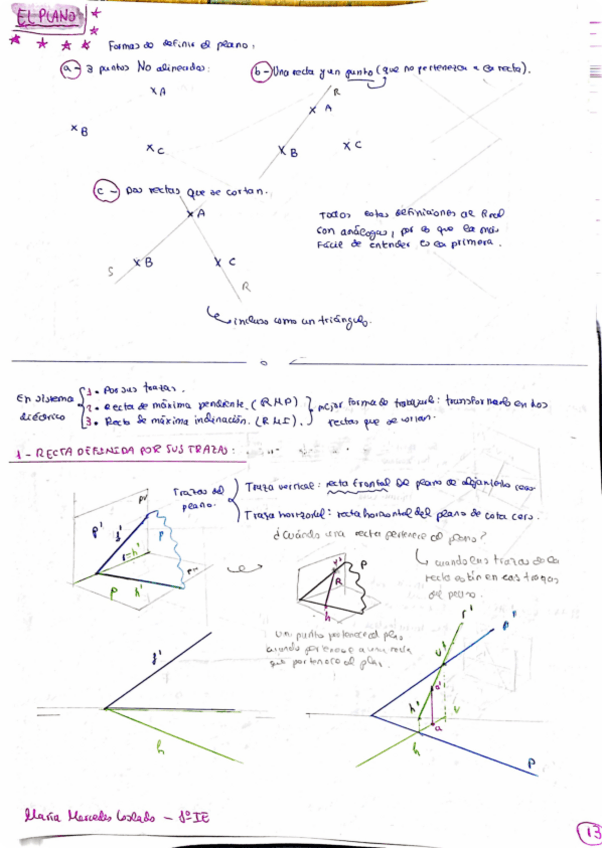 EL PLANO
Formas de definir el plano:
a - 3 puntos No alineados:
b - Una recta y un punto (que no pertenezca a la recta).
A
B
C
R
A
B
C
c - Dos rectas que se cortan.
A
B
C
S
R
Todas estas definiciones al final
son análogas, por lo que la más
fácil de entender es la primera.
incluso como un triángulo.
En sistema
diédrico
1. Por sus trazas.
2. Recta de máxima pendiente. (RMP)
3. Recta de máxima inclinación. (RMI).
mejor forma de trabajarlo: transformarlo en dos
rectas que se cortan.
1 - RECTA DEFINIDA POR SUS TRAZAS:
Trazas del
plano.
Traza vertical: recta frontal del plano de alejamiento cero
Traza horizontal: recta horizontal del plano de cota cero.
¿Cuándo una recta pertenece al plano?
cuando sus trazas de la
recta están en las trazas
del plano.
P
h'
P
R
h
Un punto pertenece al plano
cuando pertenece a una recta
que pertenece al plano.
h
r'
v'
a'
h'
a
v
h
P
María Mercedes - 1º IE
13